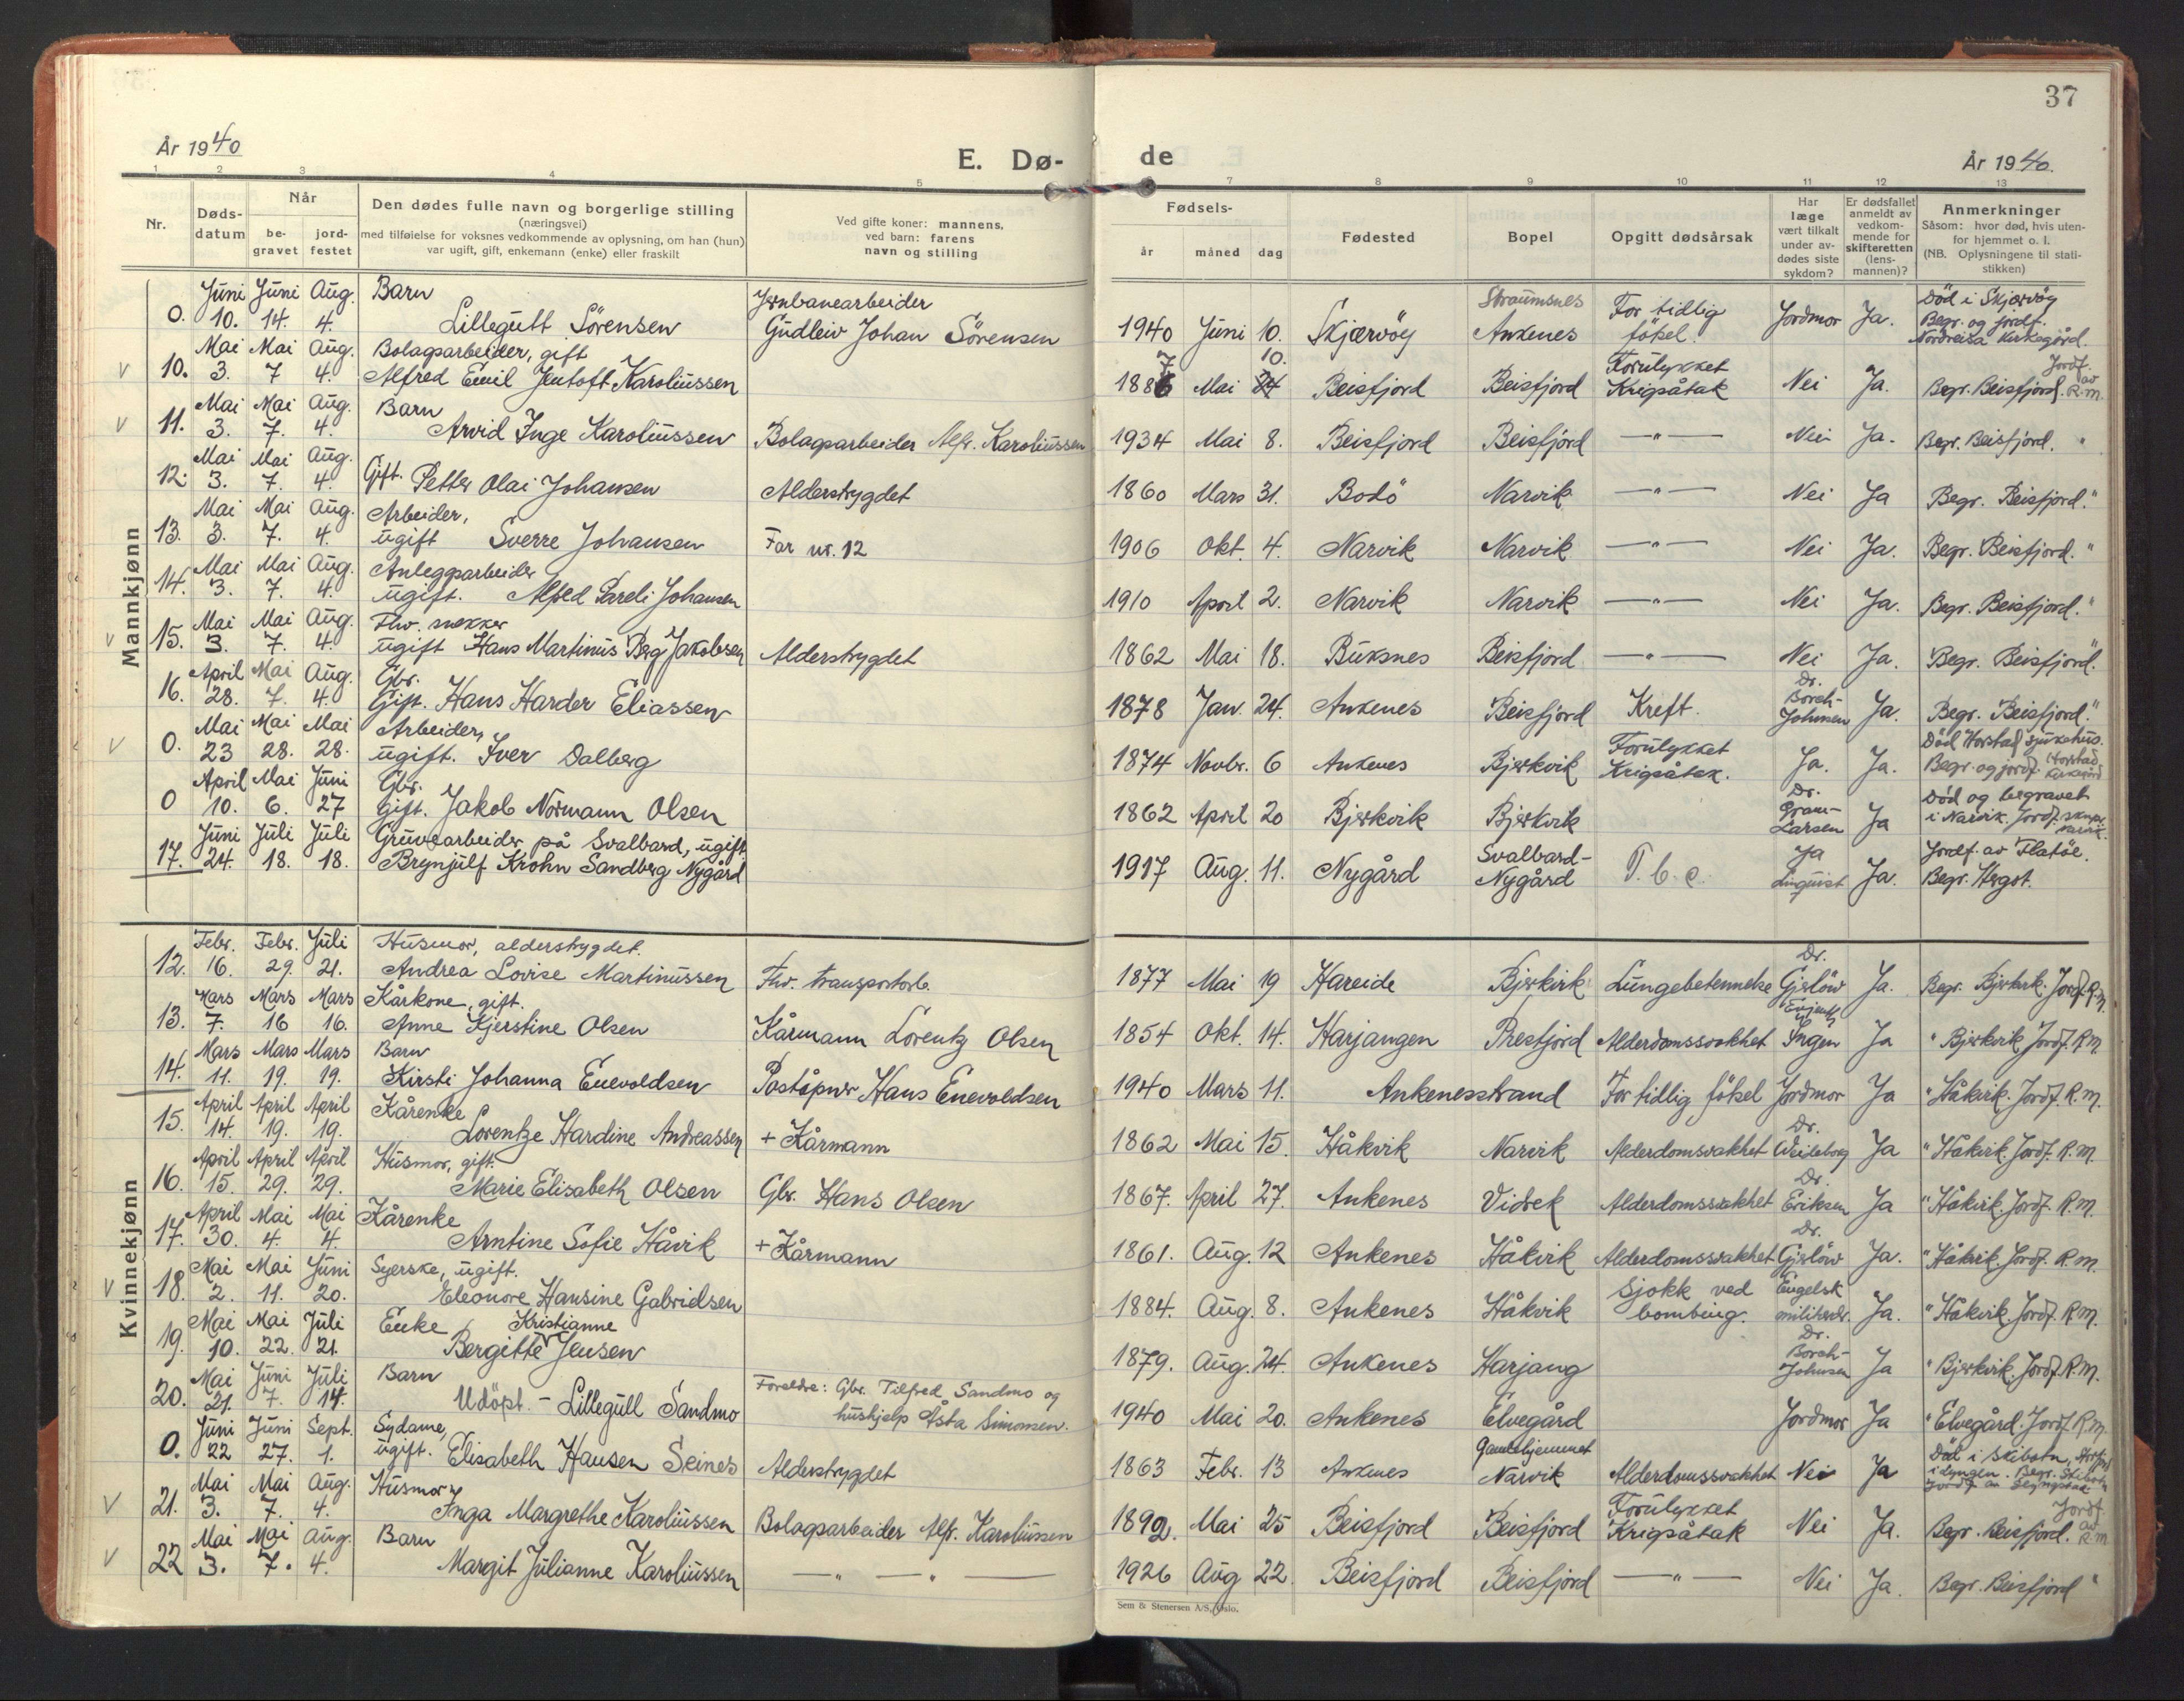 37
År 1940
E. Dø-
de
År 1940.
1 2 3 4 5 7 8 9 10 11 12 13
Nr.
Døds-
datum
Når
be-
gravet
jord-
festet
Den dødes fulle navn og borgerlige stilling
(næringsvei)
med tilføielse for voksnes vedkommende av oplysning, om han (hun)
var ugift, gift, enkemann (enke) eller fraskilt
Ved gifte koner: mannens,
ved barn: farens
navn og stilling
Fødsels-
år måned dag
Fødested
Bopel
Opgitt dødsårsak
Har
læge
vært tilkalt
under av-
dødes siste
sykdom?
Er dødsfallet
anmeldt av
vedkom-
mende for
skifteretten
(lens-
mannen)?
Anmerkninger
Såsom: hvor død, hvis uten-
for hjemmet o. l.
(NB. Oplysningene til stati-
stikken)
Mannkjønn
Juni Juni Aug. Barn Jernbanearbeider Straumsnes For tidlig Død i Skjervøy
0. 10. 14. 4. Lillegutt Sörensen Gudleiv Johan Sörensen 1940 Juni 10. Skjærvöy Ankenes fôksel. Jordmor Ja. Begr. og jordf.
Nordreisa kirkegård.
Mai Mai Aug. Bolagsarbeider, gift 7 10. Forulykket Jordf.
V 10. 3. 7 4. Alfred Emil Jentoft Karoliussen 1886 Mai 24 Beisfjord Beisfjord Krigsåtak Nei Ja. Begr. Beisfjord. av R.M.
Mai Mai Aug. Barn
V 11. 3. 7. 4. Arvid Inge Karoliussen Bolagsarbeider Alfr. Karoliussen 1934 Mai 8. Beisfjord Beisfjord —"— Nei Ja. Begr. Beisfjord. "
Mai Mai Aug.
12. 3. 7. 4. Gift. Petter Olai Johansen Alderstrygdet 1860 Mars 31. Bodö Narvik —"— Nei Ja Begr. Beisfjord. "
Mai Mai Aug. Arbeider,
13. 3. 7. 4. ugift Sverre Johansen Far nr. 12 1906 Okt. 4. Narvik Narvik —"— Nei Ja. Begr. Beisfjord. "
Mai Mai Aug. Anleggsarbeider
14. 3. 7. 4. ugift. Alfred Pareli Johansen 1910 April 2. Narvik Narvik —"— Nei Ja. Begr. Beisfjord. "
Mai Mai Aug. Fhv. snekker
V 15. 3. 7. 4. ugift Hans Martinus Berg Jakobsen Alderstrygdet 1862 Mai 18. Buksnes Beisfjord —"— Nei Ja. Begr. Beisfjord. "
April Mai Aug. Gbr. Dr. Borch-
16. 28. 7. 4. Gift. Hans Harder Eliassen 1878 Jan. 24. Ankenes Beisfjord Kreft. Johnsen Ja. Begr. Beisfjord. "
Mai Mai Mai Arbeider, Forulykket Død Harstad sjukehus.
V 0. 23 28. 28. ugift. Iver Dalberg 1874 Novbr. 6 Ankenes Bjerkvik Krigsåtak. Ja. Ja. Begr. og jordf. Harstad kirkegård
April Mai Juni Gbr. Dr. Gram- Død og begravet
0 10. 6. 27 gift. Jakob Normann Olsen 1862 April 20 Bjerkvik Bjerkvik Larsen Ja i Narvik. Jordf.
Juni Juli Juli Gruvearbeider på Svalbard, ugift. Svalbard- Ja Jordf. av Flatöe.
17. 24. 18. 18. Brynjulf Krohn Sandberg Nygård 1917 Aug. 11. Nygård Nygård T.b.c. Linquist Ja. Begr. Hergot.
Kvinnekjønn
Febr. Febr. Juli Husmor, alderstrygdet. Dr.
12. 16. 29. 21. Andrea Lovise Martinussen Fhv. transportarb. 1877 Mai 19 Hareide Bjerkvik Lungebetennelse Gjslöw Ja. Begr. Bjerkvik. Jordf. R.M.
Mars Mars Mars Kårkone, gift.
13. 7. 16 16. Anne Kjerstine Olsen Kårmann Lorentz Olsen 1854 Okt. 14. Harjangen Presfjord Alderdomssvakhet Ingen Ja " Bjerkvik. Jordf. R.M.
Mars Mars Mars Barn
14. 11. 19. 19. Kirsti Johanna Enevoldsen Poståpner Hans Enevoldsen 1940 Mars 11. Ankenesstrand For tidlig fôksel Jordmor Ja " Håkvik. Jordf. R.M.
April April April Kårenke Dr.
15. 14. 19. 19. Lorentze Hardine Andreassen + Kårmann 1862 Mai 15. Håkvik Narvik Alderdomsvakhet Weideborg Ja " Håkvik. Jordf. R.M.
April April April Husmor, gift. Dr.
16. 15. 29. 29. Marie Elisabeth Olsen Gbr. Hans Olsen 1867. April 27. Ankenes Vidrek Alderdomssvakhet Eriksen Ja " Håkvik. Jordf. R.M.
April Mai Mai Kårenke Dr.
17. 30. 4. 4. Arntine Sofie Håvik + Kårmann 1861. Aug. 12 Ankenes Håkvik Alderdomssvakhet Gjslöw Ja. " Håkvik. Jordf. R.M.
Mai Mai Juni Syerske, ugift. Sjokk ved Engelsk
V 18. 2. 11. 20. Eleonore Hansine Gabrielsen 1884. Aug. 8. Ankenes Håkvik bombing. militærdr. Ja. " Håkvik. Jordf. R.M.
Mai Mai Juli Enke Kristianne Dr. Borch-
19. 10. 22. 21. Bergitte Jensen 1879. Aug. 24. Ankenes Harjang Johnsen Ja " Bjerkvik. Jordf. R.M.
Mai Juni Juli Barn Foreldre: Gbr. Tilfred Sandmo og
20. 21. 7. 14. Udöpt. - Lillegull Sandmo hushjelp Åsta Simonsen. 1940 Mai 20. Ankenes Elvegård Jordmor Ja " Elvegård. Jordf. R.M.
Juni Juni Sept. Sydame, Gamlehjemmet Død i Skibotn,
0. 22 27. 1. ugift. Elisabeth Hansen Seines Alderstrygdet 1863 Febr. 13 Ankenes Narvik Alderdomssvakhet Nei Ja i Lyngen. Begr. Skibotn
Mai Mai Aug. Husmor Forulykket Jordf.
V 21. 3. 7. 4. Inga Margrethe Karoliussen Bolagsarbeider Alfr. Karoliussen 1892. Mai 25 Beisfjord Beisfjord Krigsåtak Nei Ja. Begr. Beisfjord. av R.M
Mai Mai Aug. Barn
V 22 3. 7. 4. Margit Julianne Karoliussen — " — " — 1926 Aug 22. Beisfjord Beisfjord —"— Nei Ja. Begr. Beisfjord "
Sem & Stenersen A/S, Oslo.